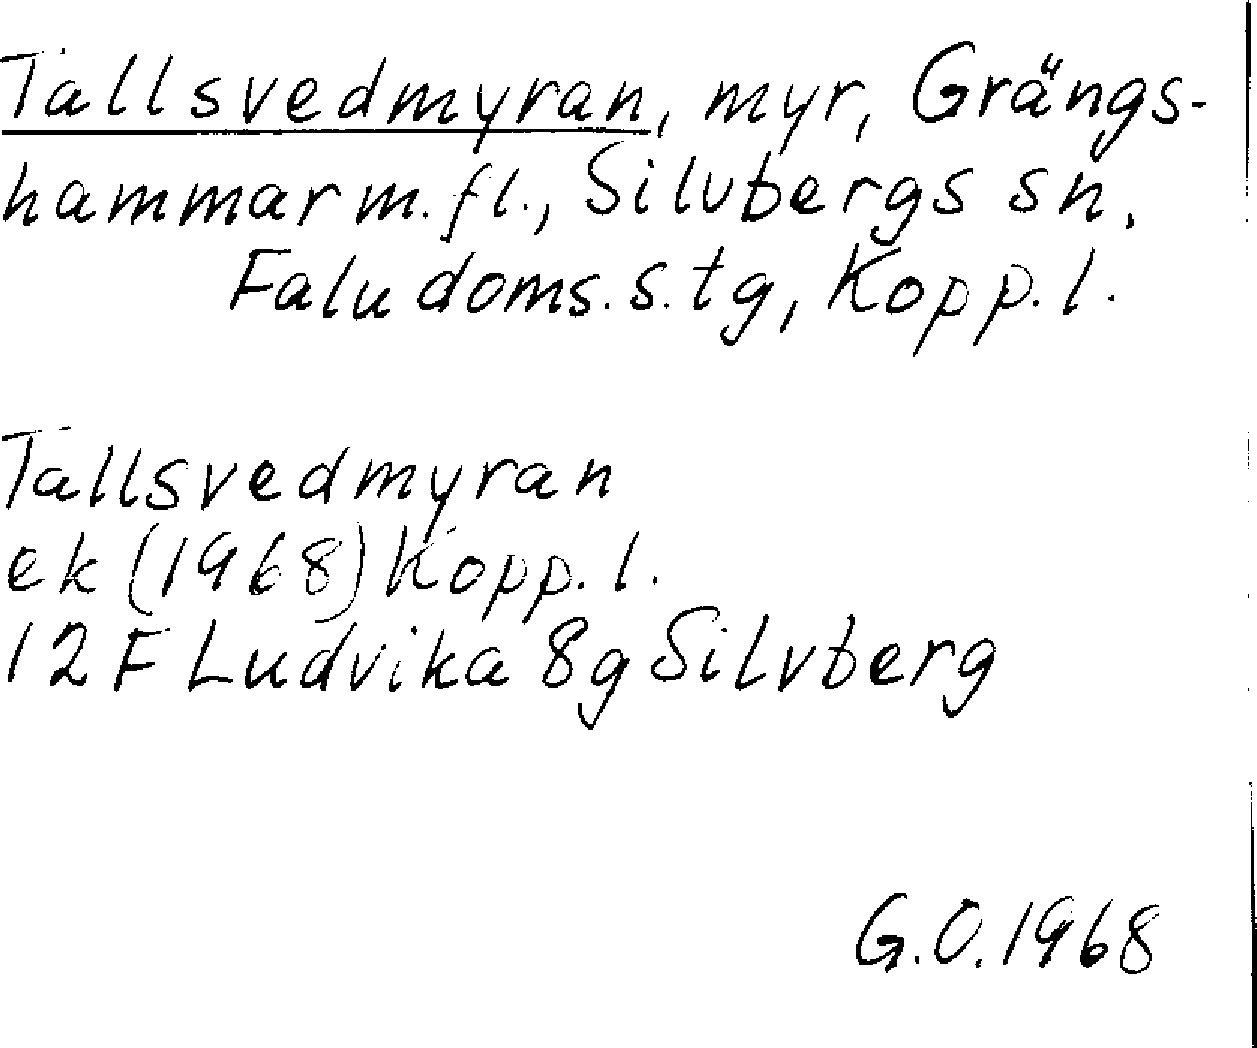 Tallsvedmyran, myr, Grängs-
hammar m.fl., Silvbergs sn.
Falu doms.s.tg, Kopp.l.
Tallsvedmyran
ek (1968) Kopp.l.
12F Ludvika 8g Silvberg
G.O.1968